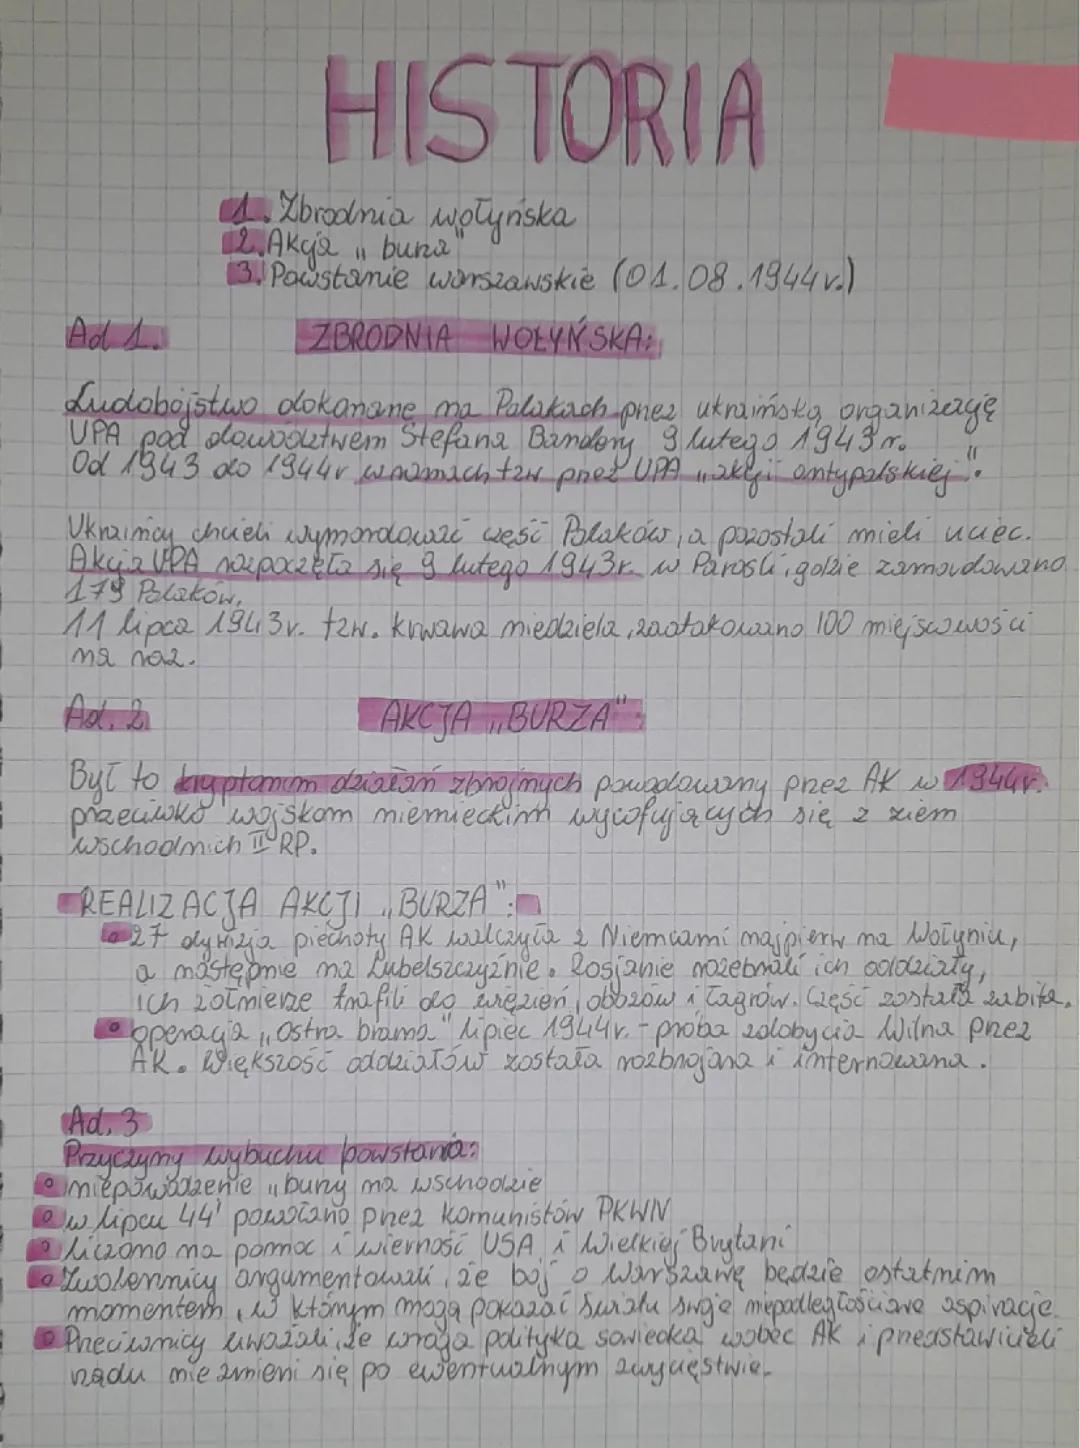 HISTORIA
1. Zbrodnia wołyńska
2. Akcja „burza"
3. Powstanie warszawskie (01.08.1944r.)
Ad 1. ZBRODNIA WOŁYŃSKA:
Ludobójstwo dokonane na Polakach przez ukraińską organizację
UPA pod dowództwem Stefana Bandery 9 lutego 1943r.
Od 1943 do 1944r w ramach tzw przez UPA „akcji antypolskiej".
Ukraińcy chcieli wymordować część Polaków, a pozostali mieli uciec.
Akcja UPA rozpoczęła się 9 lutego 1943r. w Parośli, gdzie zamordowano
179 Polaków.
11 lipca 1943r. tzw. krwawa niedziela, zaatakowano 100 miejscowości
na raz.
Ad. 2 AKCJA „BURZA":
Był to kryptonim działań zbrojnych powodowany przez AK w 1944r.
przeciwko wojskom niemieckim wycofujących się z ziem
wschodnich II RP.
REALIZACJA AKCJI „BURZA":
27 dywizja piechoty AK walczyła z Niemcami najpierw na Wołyniu,
a następnie na Lubelszczyźnie. Rosjanie rozebrali ich oddziały,
ich żołnierze trafili do więzień, obozów i łagrów. Część została zabita.
operacja „Ostra brama" lipiec 1944r. - próba zdobycia Wilna przez
AK. Większość oddziałów została rozbrojona i internowana.
Ad. 3
Przyczyny wybuchu powstania:
niepowodzenie „burzy na wschodzie
w lipcu 44' powołano przez komunistów PKWN
liczono na pomoc i wierność USA i Wielkiej Brytani
Zwolennicy argumentowali, że bój o Warszawę będzie ostatnim
momentem, w którym mogą pokazać światu swoje niepodległościowe aspiracje.
Przeciwnicy uważali, że wroga polityka sowiecka wobec AK i przedstawicieli
rządu nie zmieni się po ewentualnym zwycięstwie.